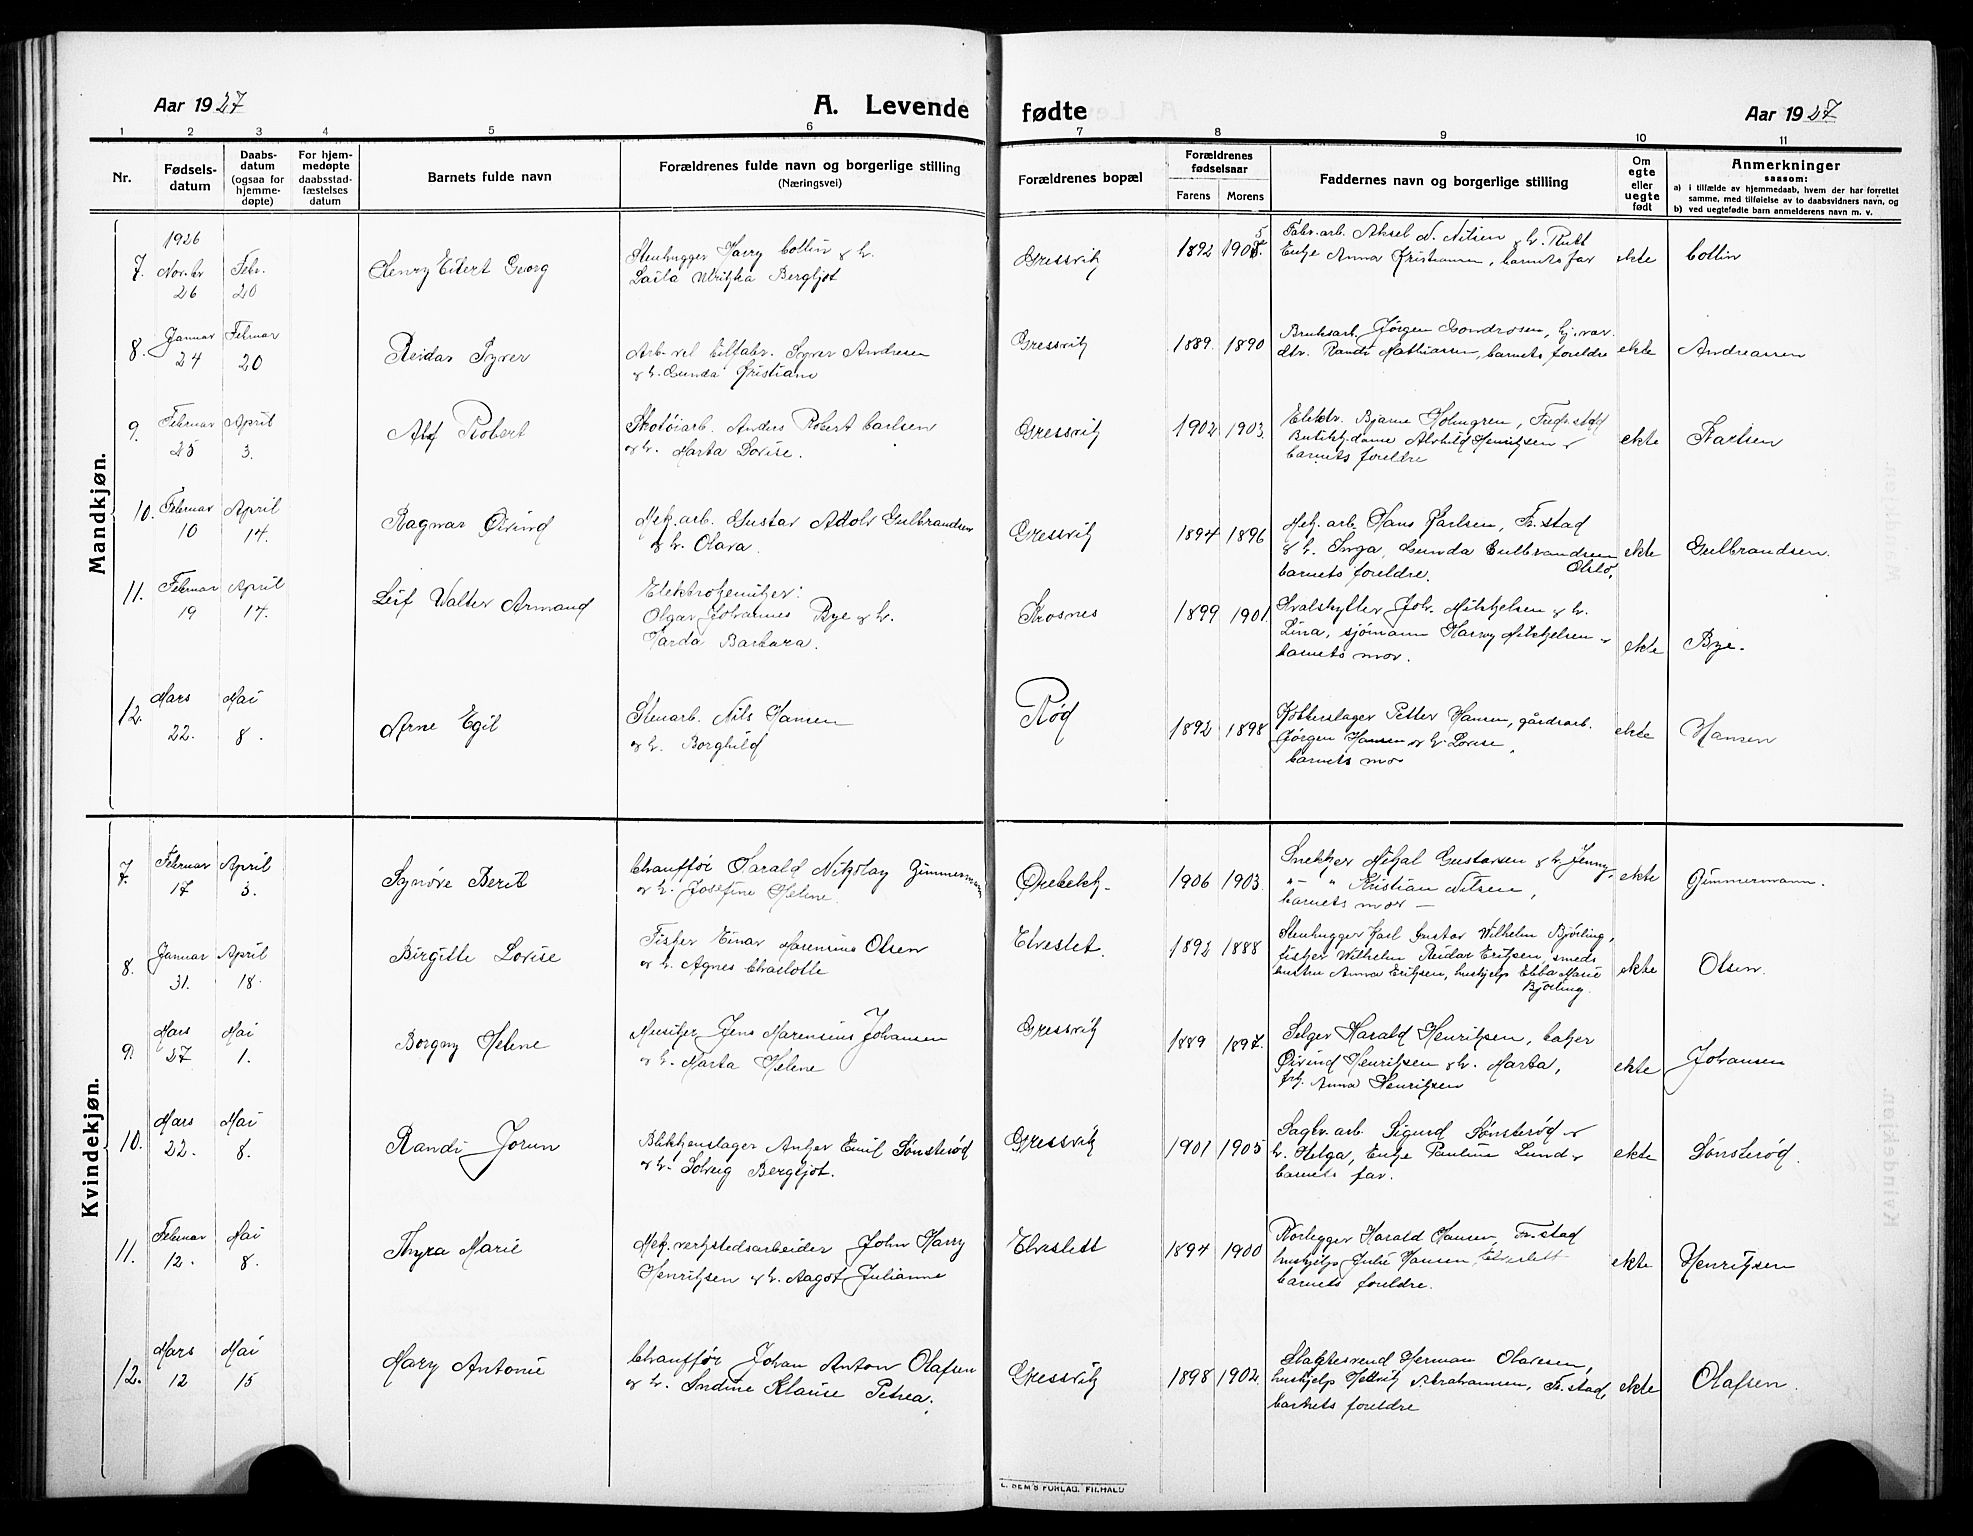 Aar 1927
A. Levende
fødte
Aar 1927
1 2 3 4 5 6 7 8 9 10 11
Nr.
Fødsels-
datum
Daabs-
datum
(ogsaa for
hjemme-
døpte)
For hjem-
medøpte
daabsstad-
fæstelses
datum
Barnets fulde navn
Forældrenes fulde navn og borgerlige stilling
(Næringsvei)
Forældrenes bopæl
Forældrenes
fødselsaar
Farens Morens
Faddernes navn og borgerlige stilling
Om
egte
eller
uegte
født
Anmerkninger
saasom:
a) i tilfælde av hjemmedaab, hvem der har forrettet
samme, med tilføielse av to daabsvidners navn, og
b) ved uegtefødte barn anmelderens navn m. v.
Mandkjøn.
7.
1926
Novbr
26
Febr.
20
Henry Eilert Georg
Stenhugger Harry Collin & h.
Laila Ulrikka Bergljot
Gressvik
1892
Fabr. arb. Aksel N. Nilsen & h. Rutt
Enke Anna Kristiansen, barnets far
ekte
Collin
8.
Januar
24
Februar
20
Reidar Syver
Syver Andresen
& h. Gunda Kristiane
Gressvik
1889. 1890
Bruksarb. Jørgen
Randi Mathiassen, barnets foreldre
ekte
Andreassen
9.
Februar
25
April
3.
Alf Robert
Skotøiarb. Anders Robert Carlsen
& h. Marta Lovise.
Gressvik
1902 1903.
Elektr. Bjarne Holmgren, Fredr.stad
Butikkdame Alvhild Henriksen &
barnets foreldre
ekte
Karlsen
10.
Februar
10
April
14.
Ragnar Øivind
Mek. arb. Gustav Adolv Gulbrandsen
& h. Olava.
Gressvik
1894 1896
Mek. arb. Hans Karlsen, Fr.stad
& h. Inga, Gunda Gulbrandsen
Oslo,
barnets foreldre.
ekte
Gulbrandsen.
11.
Februar
19
April
17.
Leif Walter Armand
Elektrokemiker:
Olgar Johannes Bye & h.
Harda Barbara.
Krosnes
1899 1901.
Hvalskytter Joh. Mikkelsen & h.
Lina, sjømann Harry Mikkelsen &
barnets mor.
ekte
Bye.
12.
Mars
22.
Mai
8.
Arne Egil
Stenarb. Nils Hansen
& h. Borghild
Rød
1892 1898
Petter Hansen, gårdsarb.
Jørgen Hansen & h. Lovise,
barnets mor
ekte
Hansen
Kvindekjøn.
7.
Februar
17
April
3.
Synøve Berit
Chauffør Harald Nikolay Gimmermann
& h. Josefine Helene.
Ørebekk.
1906 1903.
Snekker Mikal Gustavsen & h. Jenny,
— " Kristian Nilsen,
barnets mor —
ekte
Gimmermann.
8.
Januar
31.
April
18.
Birgitte Lovise
Fisker Einar Marensius Olsen
& h. Agnes Charlotte
Elveslet.
1892 1888
Stenhugger Karl Gustav Wilhelm Bjørling,
fisker Wilhelm Reidar Eriksen, smeds
Anna Eriksen, huskjelp Ebba Marie
Bjørling.
ekte
Olsen.
9.
Mars
27
Mai
1.
Borgny Helene
Musiker Jens Marensius Johansen
& h. Marta Helene
Gressvik
1889 1897.
Selger Harald Henriksen, baker
Øivind Henriksen & h. Marta,
frk. Anna Henriksen
ekte
Johansen
10.
Mars
22.
Mai
8.
Randi Jorun
Blikkenslager Anker Emil Sønsterød
& h. Solveig Bergljot.
Gressvik
1901 1905
Sagbr. arb. Sigurd Sønsterød &
h. Helga, Enke Pauline Lund &
barnets far.
ekte
Sønsterød.
11.
Februar
12.
Mai
8.
Thyra Marie
Mek. verkstedsarbeider John Harry
Henriksen & h. Aagot Julianne
Elveslett
1894 1900
Rørlegger Harald Hansen, Fr.stad
huskjelp Julie Hansen, Elveslett
barnets foreldre.
ekte
Henriksen
12.
Mars
12
Mai
15
Mary Antonie
Chauffør Johan Anton Olafsen
& h. Indine Klause Petrea.
Gressvik
1898 1902.
Slaktersvend Herman Olavesen,
huskjelp Hellvik Abrahamsen, Fr.stad,
barnets foreldre
ekte
Olafsen.
FORLAG. F.HALD